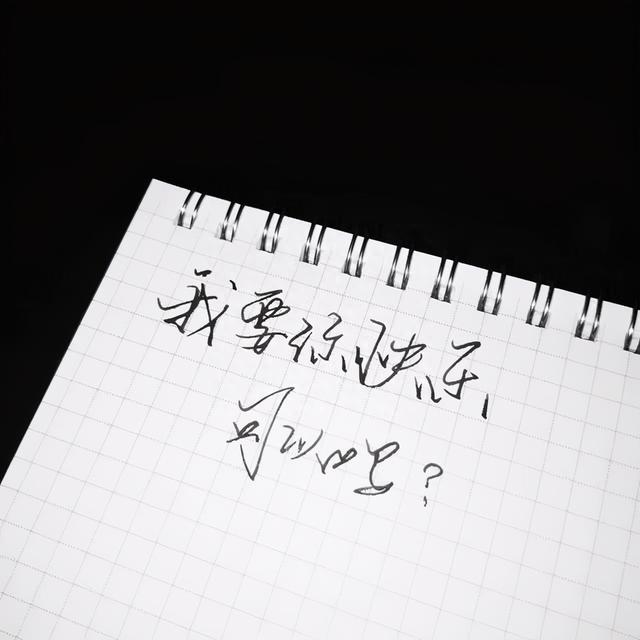 我要你快乐,
可以吗?